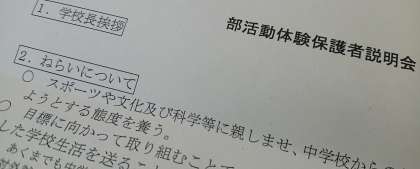 部活動体験保護者説明会
1．学校長挨拶
2．ねらいについて
○ スポーツや文化及び科学等に親しませ、中学校からの
ようとする態度を養う。
○ 目標に向かって取り組むことで
した学校生活を送るこ
あくまでも中学